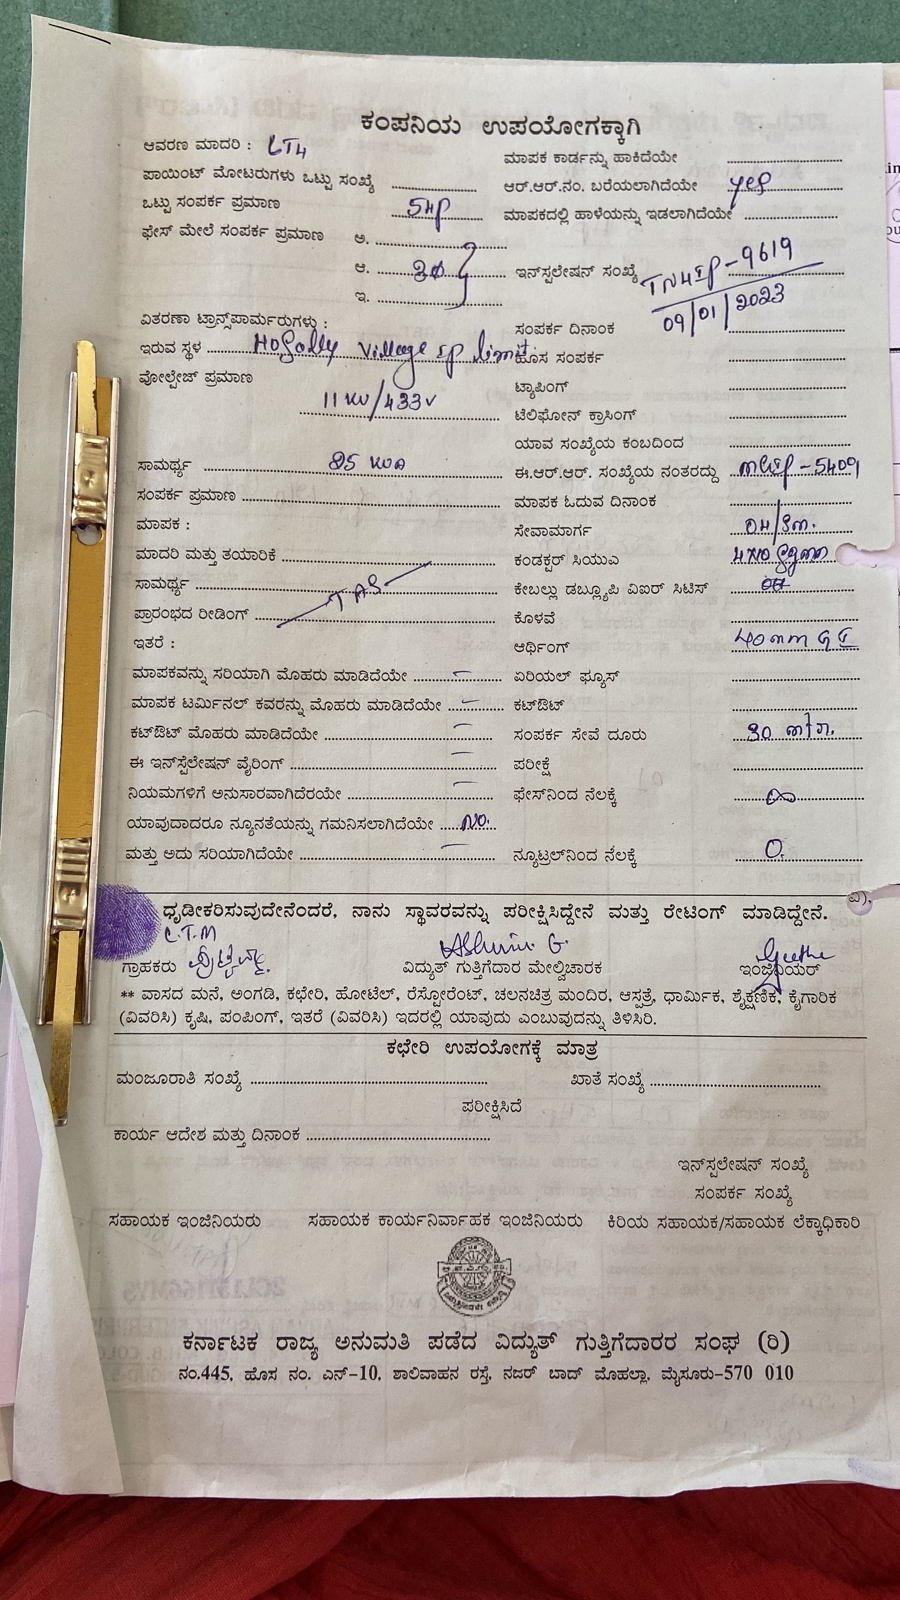 ಕಂಪನಿಯ ಉಪಯೋಗಕ್ಕಾಗಿ
ಆವರಣ ಮಾದರಿ : LT4
ಮಾಪಕ ಕಾರ್ಡನ್ನು ಹಾಕಿದೆಯೇ
ಪಾಯಿಂಟ್ ಮೋಟರುಗಳು ಒಟ್ಟು ಸಂಖ್ಯೆ
ಆರ್.ಆರ್.ನಂ. ಬರೆಯಲಾಗಿದೆಯೇ yes
ಒಟ್ಟು ಸಂಪರ್ಕ ಪ್ರಮಾಣ 5HP
ಮಾಪಕದಲ್ಲಿ ಹಾಳೆಯನ್ನು ಇಡಲಾಗಿದೆಯೇ
ಫೇಸ್ ಮೇಲೆ ಸಂಪರ್ಕ ಪ್ರಮಾಣ ಅ.
ಆ. 3Φ
ಇನ್‌ಸ್ಪಲೇಷನ್ ಸಂಖ್ಯೆ 9619
09/01/2023
ಇ.
ವಿತರಣಾ ಟ್ರಾನ್ಸ್‌ಪಾರ್ಮರುಗಳು :
ಸಂಪರ್ಕ ದಿನಾಂಕ
ಇರುವ ಸ್ಥಳ Village IP limit
ಹೊಸ ಸಂಪರ್ಕ
ವೋಲ್ಟೇಜ್ ಪ್ರಮಾಣ
ಟ್ಯಾಪಿಂಗ್
11 KV/433V
ಟೆಲಿಫೋನ್ ಕ್ರಾಸಿಂಗ್
ಯಾವ ಸಂಖ್ಯೆಯ ಕಂಬದಿಂದ
ಸಾಮರ್ಥ್ಯ KVA
ಈ.ಆರ್.ಆರ್. ಸಂಖ್ಯೆಯ ನಂತರದ್ದು
ಸಂಪರ್ಕ ಪ್ರಮಾಣ
ಮಾಪಕ ಓದುವ ದಿನಾಂಕ
ಮಾಪಕ :
ಸೇವಾಮಾರ್ಗ
ಮಾದರಿ ಮತ್ತು ತಯಾರಿಕೆ
ಕಂಡಕ್ಟರ್ ಸಿಯುಎ
ಸಾಮರ್ಥ್ಯ
ಕೇಬಲ್ಲು ಡಬ್ಲ್ಯೂಪಿ ವಿಐರ್ ಸಿಟಿಸ್
ಪ್ರಾರಂಭದ ರೀಡಿಂಗ್
ಕೊಳವೆ
ಇತರೆ :
ಆರ್ಥಿಂಗ್ 40mm G I
ಮಾಪಕವನ್ನು ಸರಿಯಾಗಿ ಮೊಹರು ಮಾಡಿದೆಯೇ —
ಏರಿಯಲ್ ಫ್ಯೂಸ್
ಮಾಪಕ ಟರ್ಮಿನಲ್ ಕವರನ್ನು ಮೊಹರು ಮಾಡಿದೆಯೇ —
ಕಟ್‌ಔಟ್
ಕಟ್‌ಔಟ್ ಮೊಹರು ಮಾಡಿದೆಯೇ —
ಸಂಪರ್ಕ ಸೇವೆ ದೂರು
ಈ ಇನ್‌ಸ್ಪೆಲೇಷನ್ ವೈರಿಂಗ್ —
ಪರೀಕ್ಷೆ
ನಿಯಮಗಳಿಗೆ ಅನುಸಾರವಾಗಿದೆರಯೇ —
ಫೇಸ್‌ನಿಂದ ನೆಲಕ್ಕೆ ∞
ಯಾವುದಾದರೂ ನ್ಯೂನತೆಯನ್ನು ಗಮನಿಸಲಾಗಿದೆಯೇ NO.
ಮತ್ತು ಅದು ಸರಿಯಾಗಿದೆಯೇ —
ನ್ಯೂಟ್ರಲ್‌ನಿಂದ ನೆಲಕ್ಕೆ 0.
ಧೃಡೀಕರಿಸುವುದೇನೆಂದರೆ, ನಾನು ಸ್ಥಾವರವನ್ನು ಪರೀಕ್ಷಿಸಿದ್ದೇನೆ ಮತ್ತು ರೇಟಿಂಗ್ ಮಾಡಿದ್ದೇನೆ.
L.T.M
ಗ್ರಾಹಕರು
ವಿದ್ಯುತ್ ಗುತ್ತಿಗೆದಾರ ಮೇಲ್ವಿಚಾರಕ
ಇಂಜಿನಿಯರ್
** ವಾಸದ ಮನೆ, ಅಂಗಡಿ, ಕಛೇರಿ, ಹೋಟೆಲ್, ರೆಸ್ಟೋರೆಂಟ್, ಚಲನಚಿತ್ರ ಮಂದಿರ, ಆಸ್ಪತ್ರೆ, ಧಾರ್ಮಿಕ, ಶೈಕ್ಷಣಿಕ, ಕೈಗಾರಿಕ
(ವಿವರಿಸಿ) ಕೃಷಿ, ಪಂಪಿಂಗ್, ಇತರೆ (ವಿವರಿಸಿ) ಇದರಲ್ಲಿ ಯಾವುದು ಎಂಬುವುದನ್ನು ತಿಳಿಸಿರಿ.
ಕಛೇರಿ ಉಪಯೋಗಕ್ಕೆ ಮಾತ್ರ
ಮಂಜೂರಾತಿ ಸಂಖ್ಯೆ
ಖಾತೆ ಸಂಖ್ಯೆ
ಪರೀಕ್ಷಿಸಿದೆ
ಕಾರ್ಯ ಆದೇಶ ಮತ್ತು ದಿನಾಂಕ
ಇನ್‌ಸ್ಪಲೇಷನ್ ಸಂಖ್ಯೆ
ಸಂಪರ್ಕ ಸಂಖ್ಯೆ
ಸಹಾಯಕ ಇಂಜಿನಿಯರು
ಸಹಾಯಕ ಕಾರ್ಯನಿರ್ವಾಹಕ ಇಂಜಿನಿಯರು
ಕಿರಿಯ ಸಹಾಯಕ/ಸಹಾಯಕ ಲೆಕ್ಕಾಧಿಕಾರಿ
ಕರ್ನಾಟಕ ರಾಜ್ಯ ಅನುಮತಿ ಪಡೆದ ವಿದ್ಯುತ್ ಗುತ್ತಿಗೆದಾರರ ಸಂಘ (ರಿ)
ನಂ.445, ಹೊಸ ನಂ. ಎನ್-10, ಶಾಲಿವಾಹನ ರಸ್ತೆ, ನಜರ್ ಬಾದ್ ಮೊಹಲ್ಲಾ, ಮೈಸೂರು-570 010